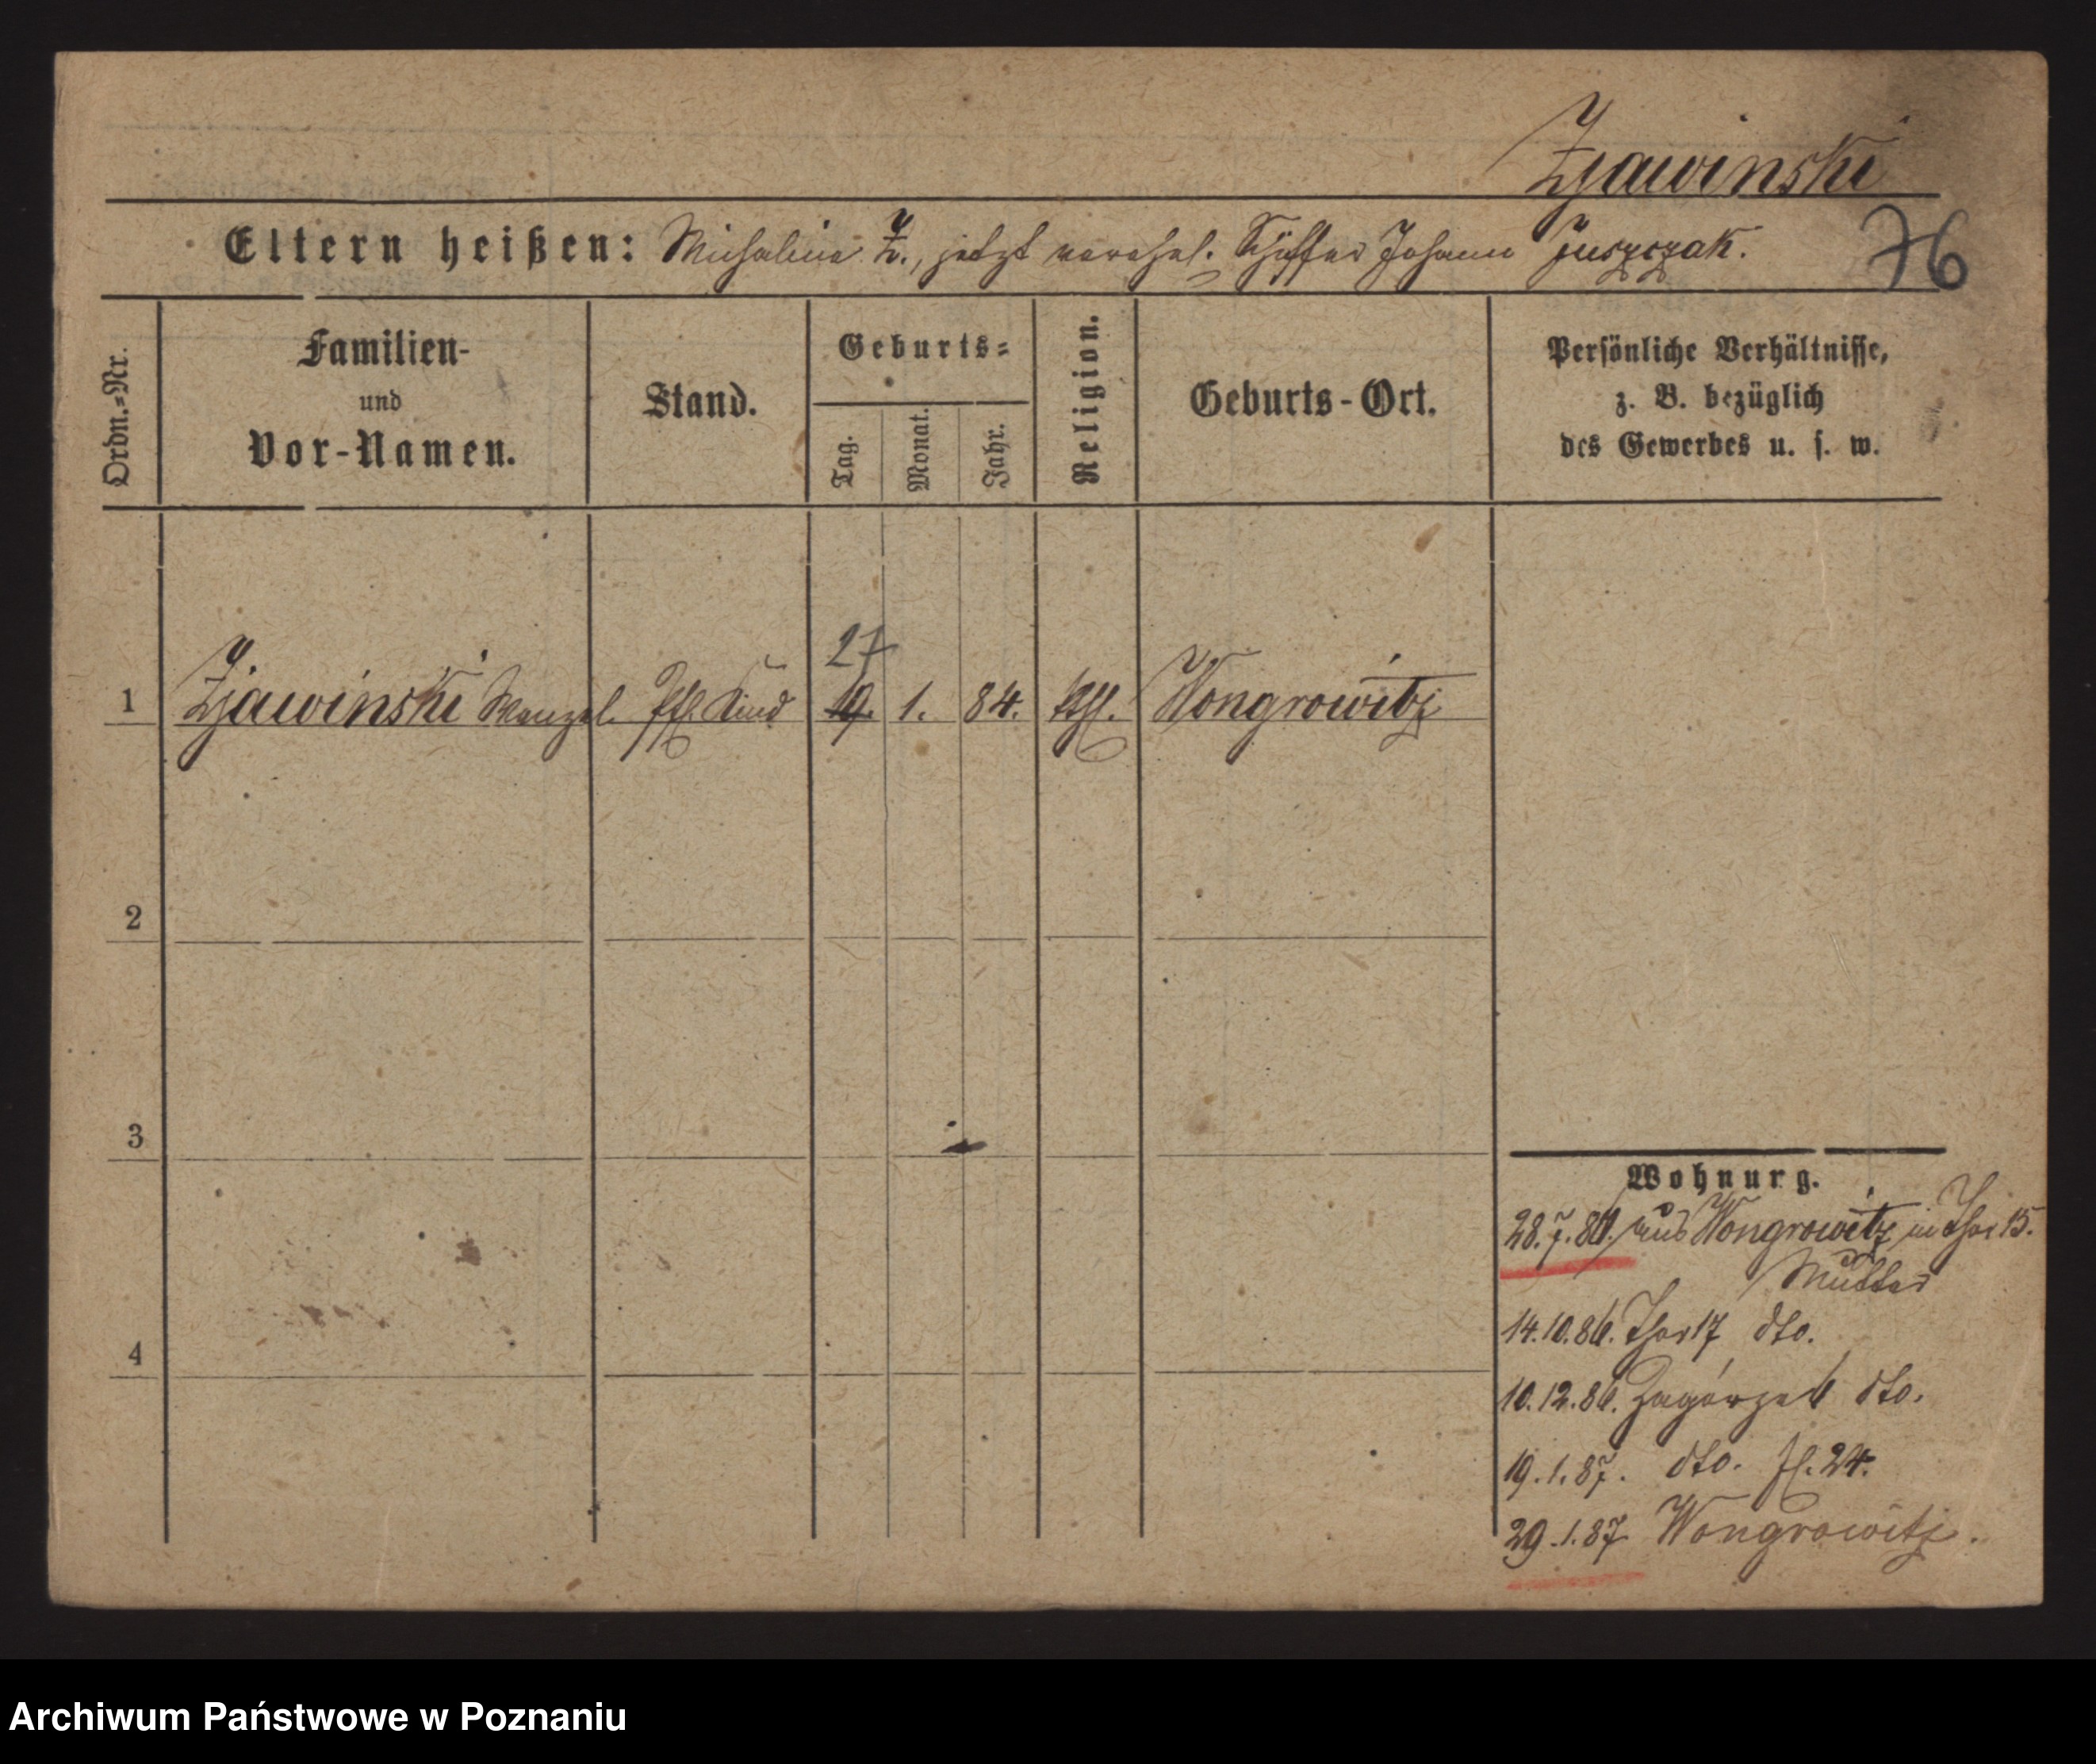 Zjawinski
Eltern heißen: Michalina Z., jetzt verehel. Schiffer Johann Juszczak.
76
Ordn.-Nr.
Familien-
und
Vor-Namen.
Stand.
Geburts-
Tag.
Monat.
Jahr.
Religion.
Geburts-Ort.
Persönliche Verhältnisse,
z. B. bezüglich
des Gewerbes u. s. w.
27
1 Zjawinski Wenzel. Pfl. Kind 19. 1. 84. kth. Wongrowitz
2
3
4
Wohnung.
28.7.86. aus Wongrowitz in Thor 15.
Mutter
14.10.86. Thor 17 dto.
10.12.86. Zagórze 6 dto.
19.1.87. dto. 24.
29.1.87 Wongrowitz.
Archiwum Państwowe w Poznaniu